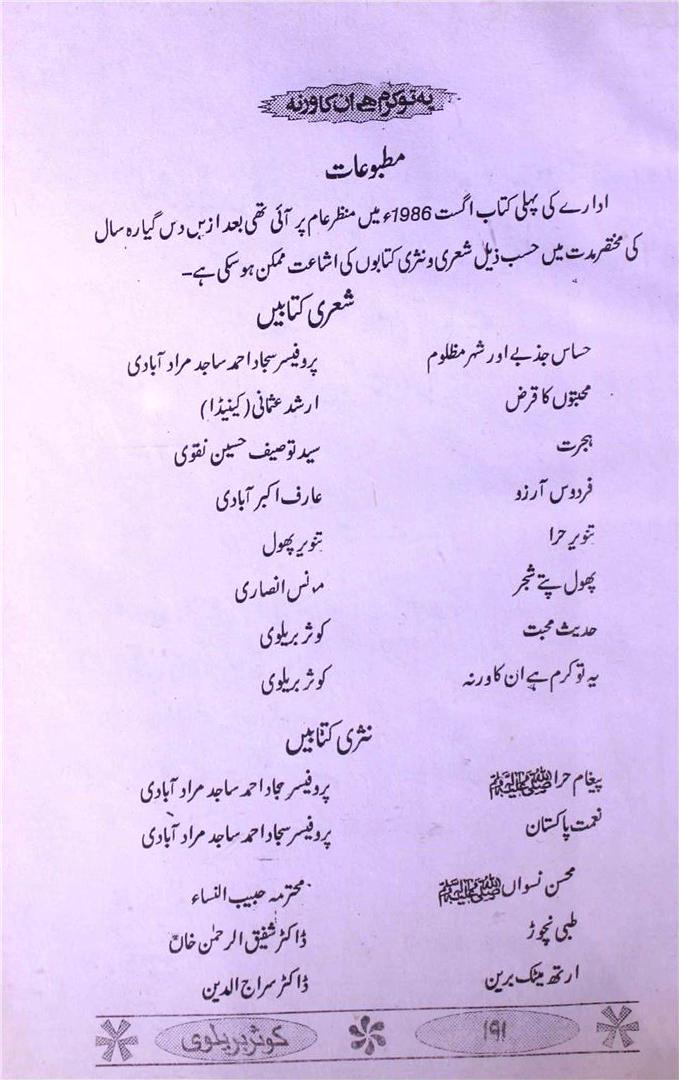 یہ تو کرم ہے ان کا ورنہ
مطبوعات
ادارے کی پہلی کتاب اگست 1986ء میں منظر عام پر آئی تھی بعد ازیں دس گیارہ سال
کی مختصر مدت میں حسب ذیل شعری و نثری کتابوں کی اشاعت ممکن ہو سکی ہے-
شعری کتابیں
حساس جذبے اور شہر مظلوم پروفیسر سجاد احمد ساجد مراد آبادی
محبتوں کا قرض ارشد عثمانی (کینیڈا)
ہجرت سید توصیف حسین نقوی
فردوس آرزو عارف اکبر آبادی
تنویر حرا تنویر پھول
پھول پتے شجر مونس انصاری
حدیث محبت کوثر بریلوی
یہ تو کرم ہے ان کا ورنہ کوثر بریلوی
نثری کتابیں
پیغام حرا ﷺ پروفیسر سجاد احمد ساجد مراد آبادی
نعمت پاکستان پروفیسر سجاد احمد ساجد مراد آبادی
محسن نسواں ﷺ محترمہ حبیب النساء
طبی نچوڑ ڈاکٹر شفیق الرحمٰن خاں
ارتھ میٹک برین ڈاکٹر سراج الدین
۱۹۱ کوثر بریلوی